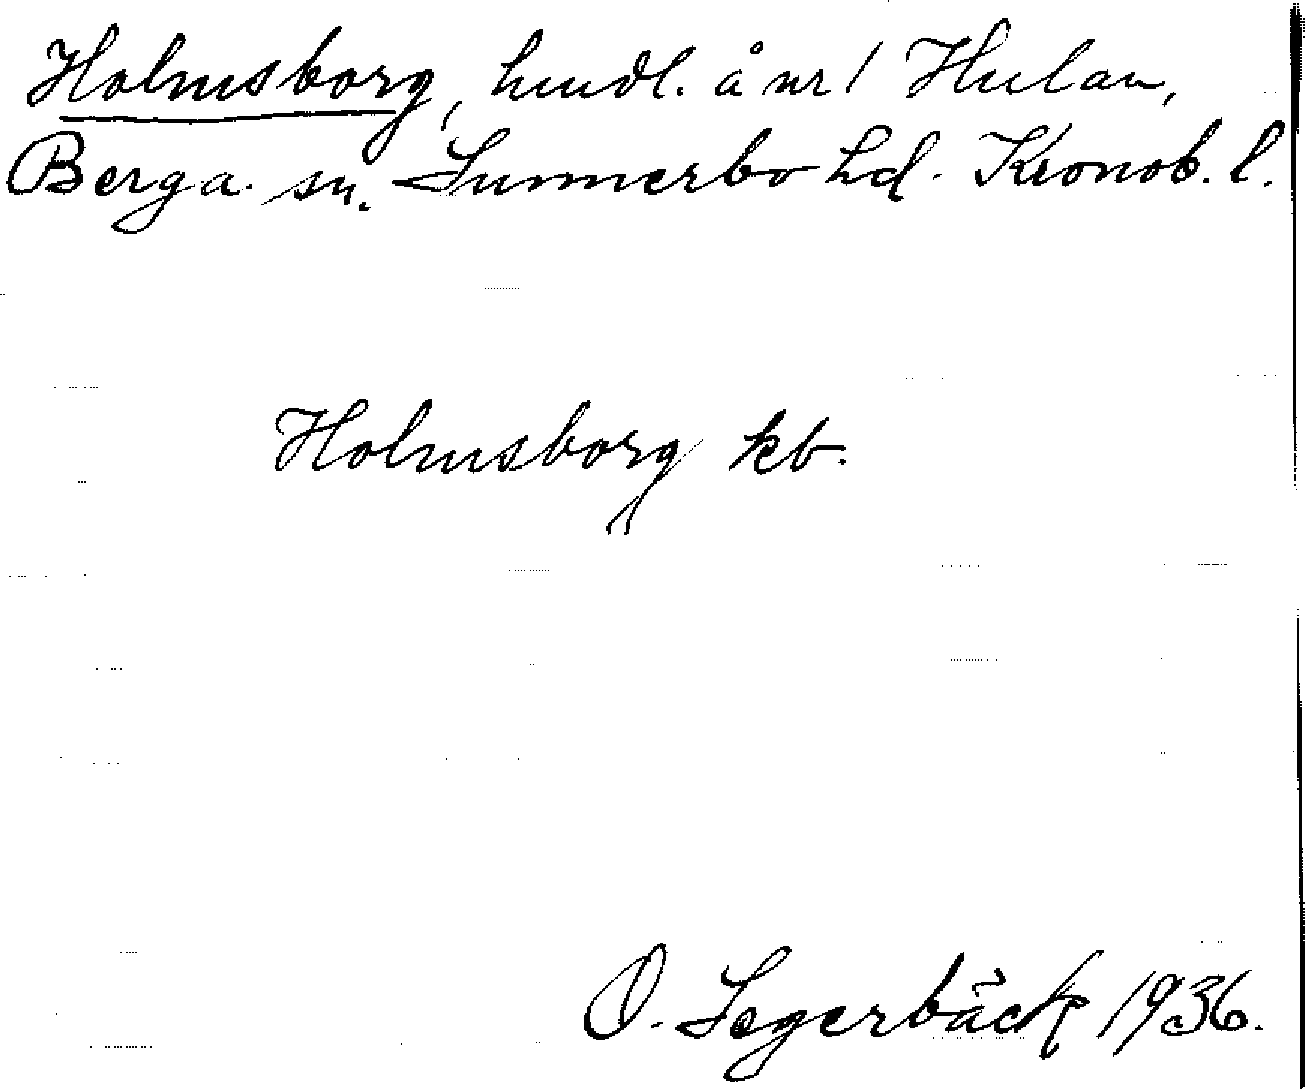 Holmsborg, hmdl. å nr 1 Hulan,
Berga sn. Sunnerbo hd. Kronob. l.
Holmsborg kb.
O. Segerbäck 1936.